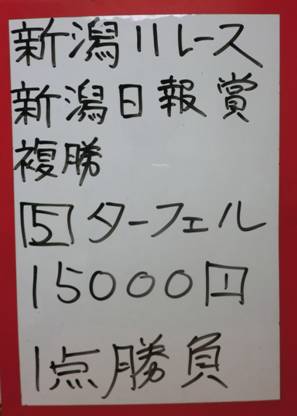 新潟11レース
新潟日報賞
複勝
5ターフェル
15000円
1点勝負